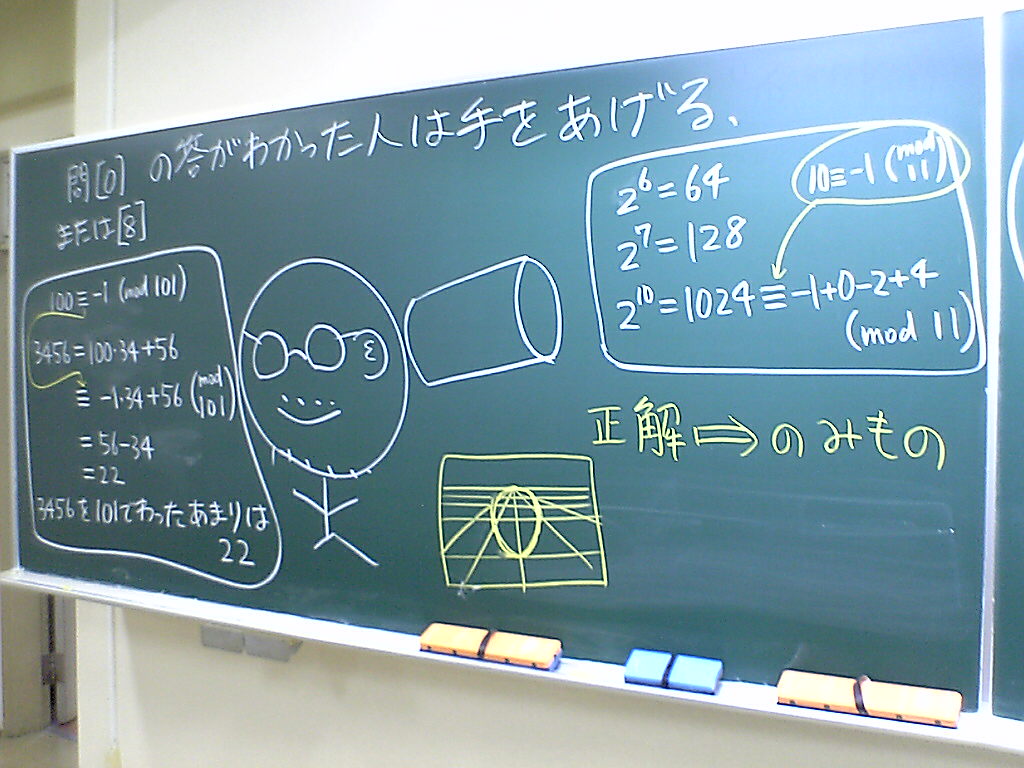 問[0]の答がわかった人は手をあげる、
または[8]
100≡-1 (mod 101)
3456=100·34+56
≡-1·34+56 (mod 101)
=56-34
=22
3456を101でわったあまりは
22
2⁶=64
10≡-1 (mod 11)
2⁷=128
2¹⁰=1024≡-1+0-2+4
(mod 11)
正解⇒のみもの